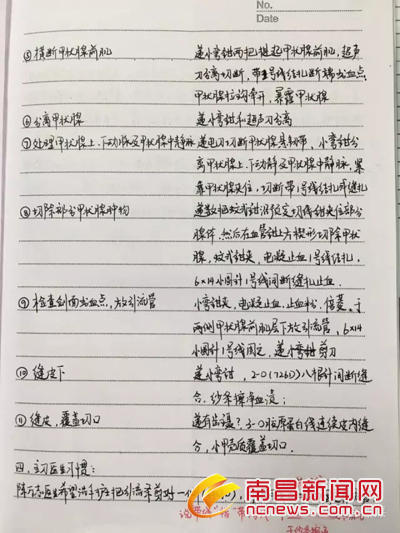 No.
Date
⑤ 横断甲状腺前肌 递小弯钳两把提起甲状腺前肌,超声
刀分离切断,带1号线结扎断端出血点,
甲状腺拉钩牵开,暴露甲状腺
⑥ 分离甲状腺 递小弯钳和超声刀分离
⑦ 处理甲状腺上、下动脉及甲状腺中静脉 递电刀切断甲状腺悬韧带,小弯钳分
离甲状腺上、下动静及甲状腺中静脉,
靠甲状腺夹住,切断带1号线结扎再缝扎
⑧ 切除部分甲状腺肿物 递数把蚊式钳沿预定切线钳夹住部分
腺体,然后在血管钳上方楔形切除甲状
腺,蚊式钳夹,电凝止血1号线结扎,
6×14小圆针1号线间断缝扎止血.
⑨ 检查创面出血点,放引流管 小弯钳夹,电凝止血.止血粉.倍菱.于
两侧甲状腺前肌层下放引流管,6×14
小圆针1号线固定,递小弯钳剪刀
⑩ 缝皮下 递小弯钳,2-0(726D)八根针间断缝
合.纱布擦净血渍;
⑪ 缝皮,覆盖切口 递有齿镊?3-0胶原蛋白线连续皮内缝
合,小甲壳质覆盖切口.
四、主刀医生习惯:
医生希望洗手护士把引流管剪对一
南昌新闻网
ncnews.com.cn